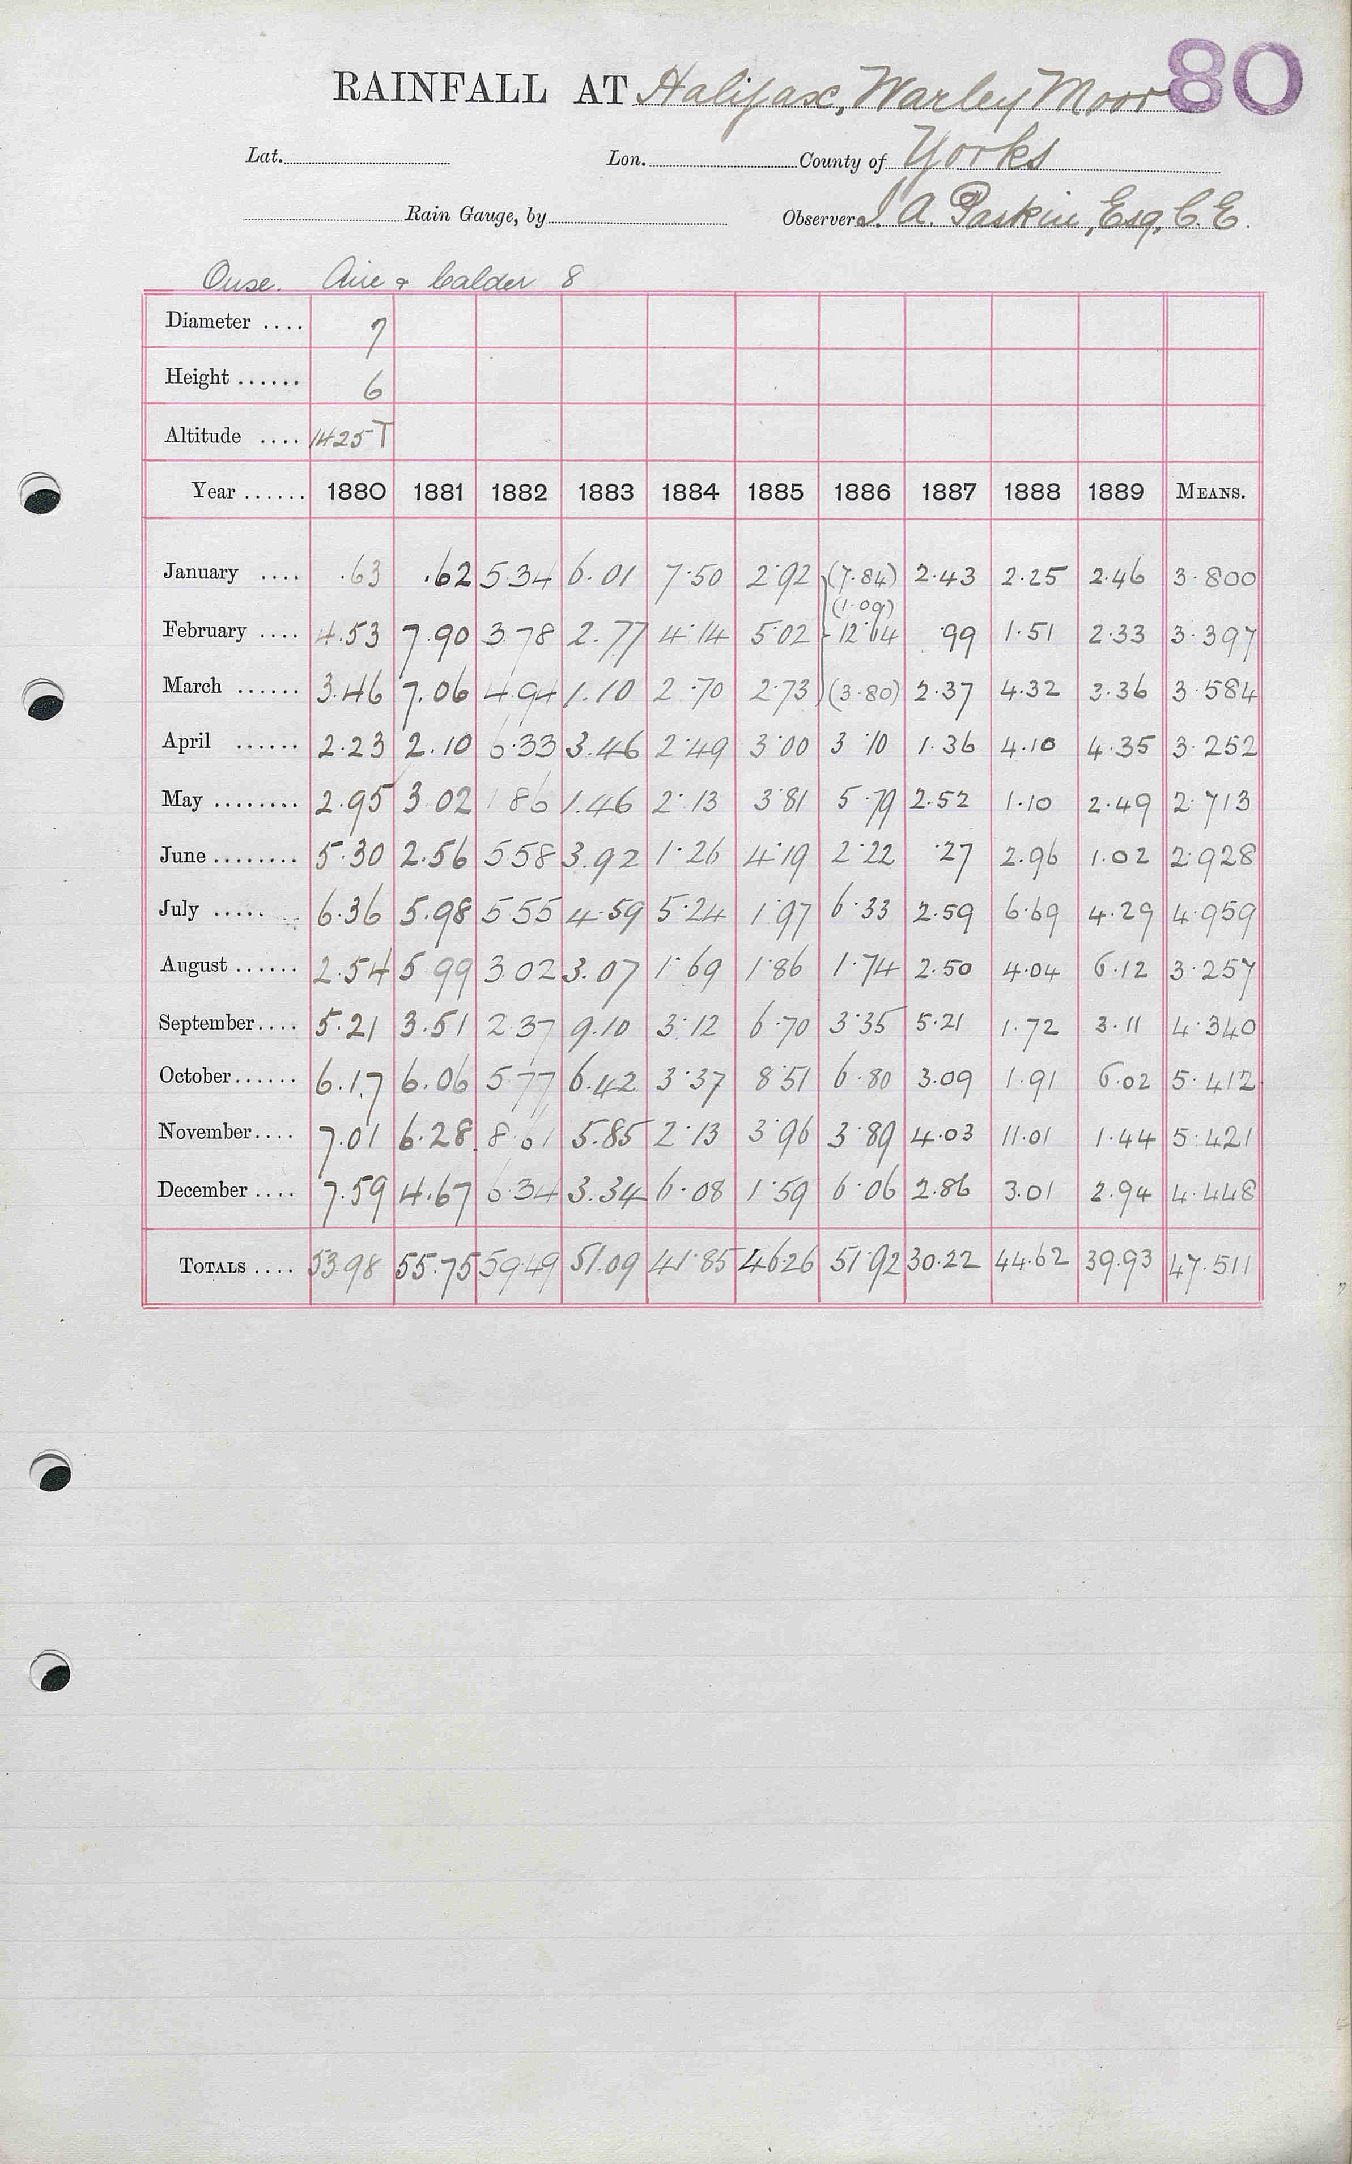 80
RAINFALL AT Halifax, Warley Moor
Lat. Lon. County of Yorks
Rain Gauge, by Observer J. A. Paskin, Esq, C.E.
Ouse. Aire & Calder 8
Diameter .... 7
Height ...... 6
Altitude .... 1425 T
Year ...... 1880 1881 1882 1883 1884 1885 1886 1887 1888 1889 MEANS.
January .... .63 .62 5.34 6.01 7.50 2.92 (7.84) 2.43 2.25 2.46 3.800
(1.00)
February .... 4.53 7.90 3.78 2.77 4.14 5.02 12.64 .99 1.51 2.33 3.397
March ...... 3.46 7.06 4.94 1.10 2.70 2.73 (3.80) 2.37 4.32 3.36 3.584
April ...... 2.23 2.10 6.33 3.46 2.49 3.00 3.10 1.36 4.10 4.35 3.252
May ........ 2.95 3.02 1.86 1.46 2.13 3.81 5.79 2.52 1.10 2.49 2.713
June ........ 5.30 2.56 5.58 3.92 1.26 4.19 2.22 .27 2.96 1.02 2.928
July ..... 6.36 5.98 5.55 4.59 5.24 1.97 6.33 2.59 6.69 4.29 4.959
August ...... 2.54 5.99 3.02 3.07 1.69 1.86 1.74 2.50 4.04 6.12 3.257
September .... 5.21 3.51 2.37 9.10 3.12 6.70 3.35 5.21 1.72 3.11 4.340
October ...... 6.17 6.06 5.77 6.42 3.37 8.51 6.80 3.09 1.91 6.02 5.412
November .... 7.01 6.28 8.61 5.85 2.13 3.96 3.89 4.03 11.01 1.44 5.421
December .... 7.59 4.67 6.34 3.34 6.08 1.59 6.06 2.86 3.01 2.94 4.448
TOTALS .... 53.98 55.75 59.49 51.09 41.85 46.26 51.92 30.22 44.62 39.93 47.511